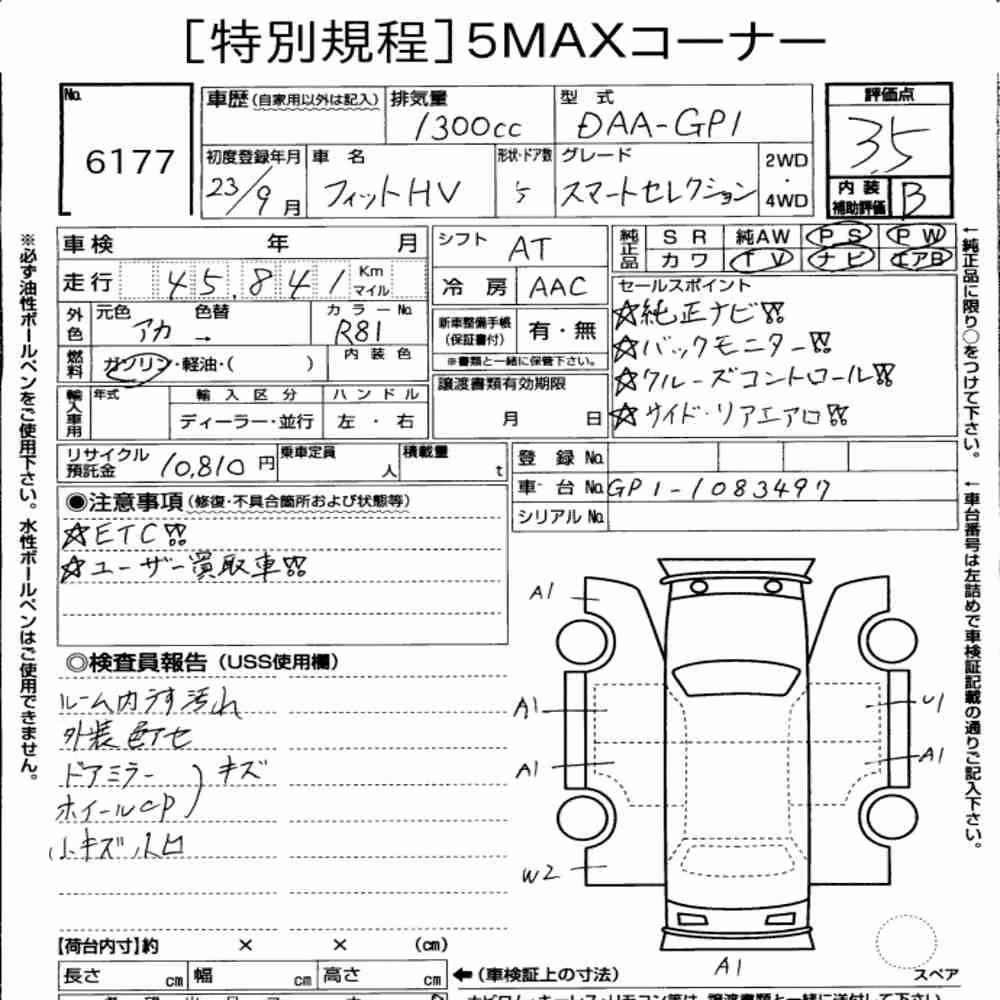 [特別規程]5MAXコーナー
No. 6177
車歴(自家用以外は記入) 排気量 1300cc 型式 DAA-GP1
初度登録年月 23/9月 車名 フィットHV 形状・ドア数 5 グレード スマートセレクション 2WD・4WD
評価点 3.5
内装補助評価 B
車検 年 月
走行 45,841 Km マイル
外色 元色 アカ → 色替 カラーNo. R81
燃料 ガソリン・軽油・( ) 内装色
輸入車用 年式 輸入区分 ディーラー・並行 ハンドル 左・右
シフト AT
冷房 AAC
新車整備手帳(保証書付) 有・無
※書類と一緒に保管下さい。
譲渡書類有効期限 月 日
純正品 SR 純AW PS PW
カワ TV ナビ エアB
セールスポイント
☆純正ナビ!!
☆バックモニター!!
☆クルーズコントロール!!
☆サイド・リアエアロ!!
リサイクル預託金 10,810円 乗車定員 人 積載量 t
登録No.
車台No. GP1-1083497
シリアルNo.
◉注意事項(修復・不具合箇所および状態等)
☆ETC!!
☆ユーザー買取車!!
◎検査員報告(USS使用欄)
ルーム内うす汚れ
外装色アセ
ドアミラー
ホイールcp)キズ
小キズ小凹
A1
A1
A1
W2
U1
A1
A1
スペア
【荷台内寸】約 × × (cm)
長さ cm 幅 cm 高さ cm
←(車検証上の寸法)
※必ず油性ボールペンをご使用下さい。水性ボールペンはご使用できません。
←純正品に限り○をつけて下さい。
←車台番号は左詰めで車検証記載の通りご記入下さい。